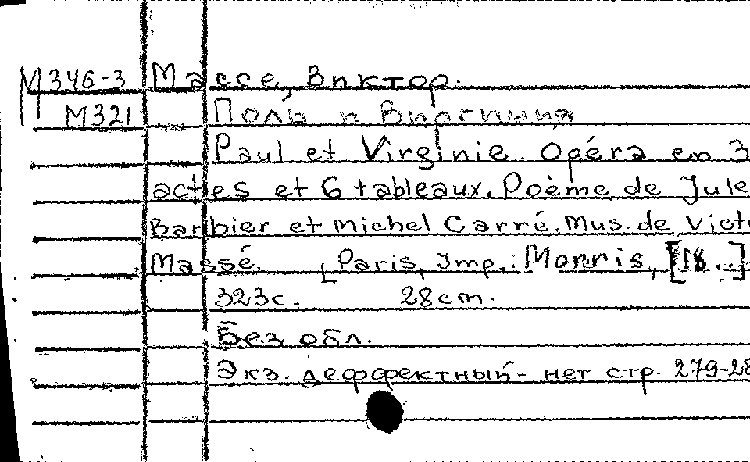 М346-3 Массе, Виктор.
М321 Поль и Виргиния
Paul et Virginie. Opéra en 3
actes et 6 tableaux. Poème de Jule
Barbier et Michel Carré. Mus. de Vict
Massé. [Paris, Imp.: Morris, [18..]
323с. 28cm.
Без обл.
Экз. деффектный - нет стр. 279-28